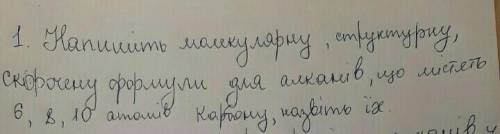 1. Напишіть молекулярну, структурну,
скорочену формули для алканів, що містять
6, 8, 10 атомів Карбону, назвіть їх.